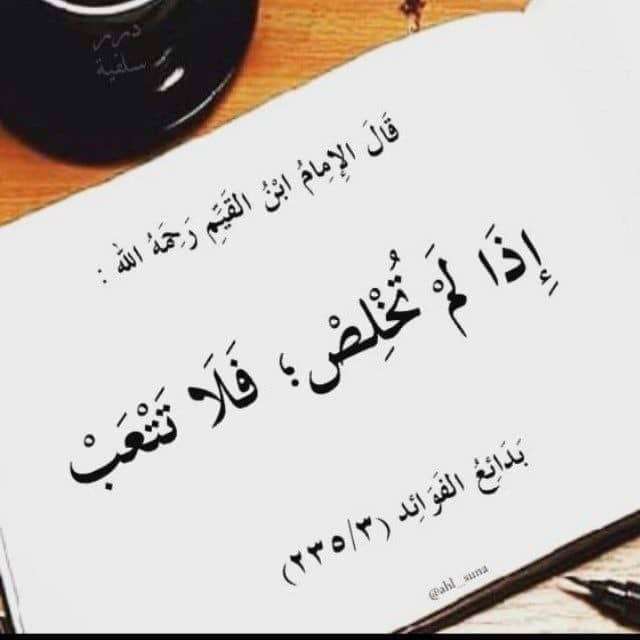 درر
سلفية
قَالَ الإِمَامُ ابْنُ القَيِّمِ رَحِمَهُ الله :
إِذَا لَمْ تُخْلِصْ؛ فَلَا تَتْعَبْ
بَدَائِعُ الفَوَائِد (٢٣٥/٣)
@ahl_suna